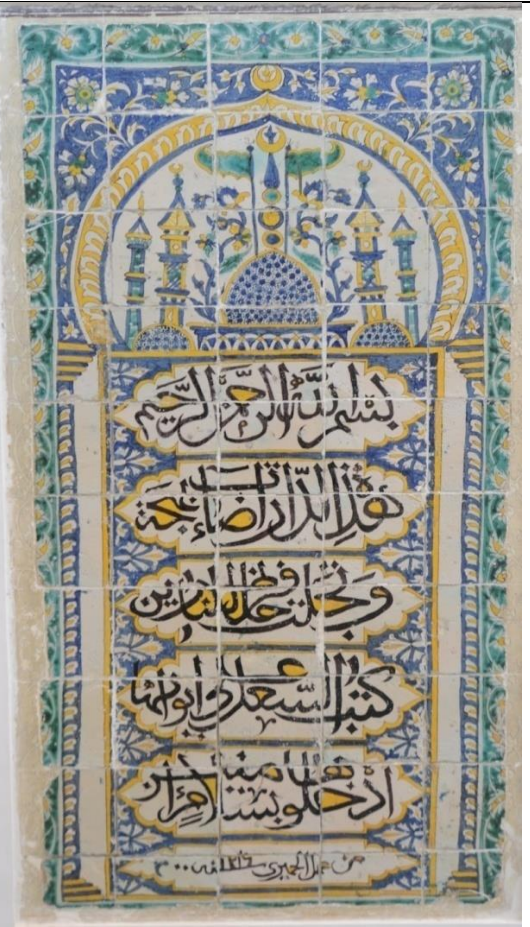 بسم الله الرحمن الرحيم
هذه الدار أضاءت بهجة
وتجلت فرحا للناظرين
كتب السعد على أبوابها
ادخلوها بسلام آمنين
من عمل الخميري